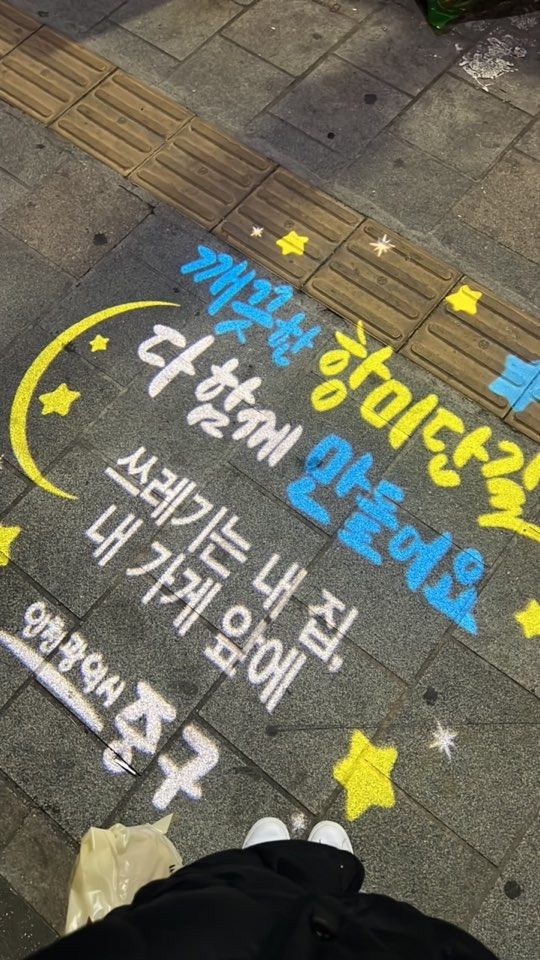 깨끗한 항미단길
다 함께 만들어요
쓰레기는 내 집,
내 가게 앞에
인천광역시 중구